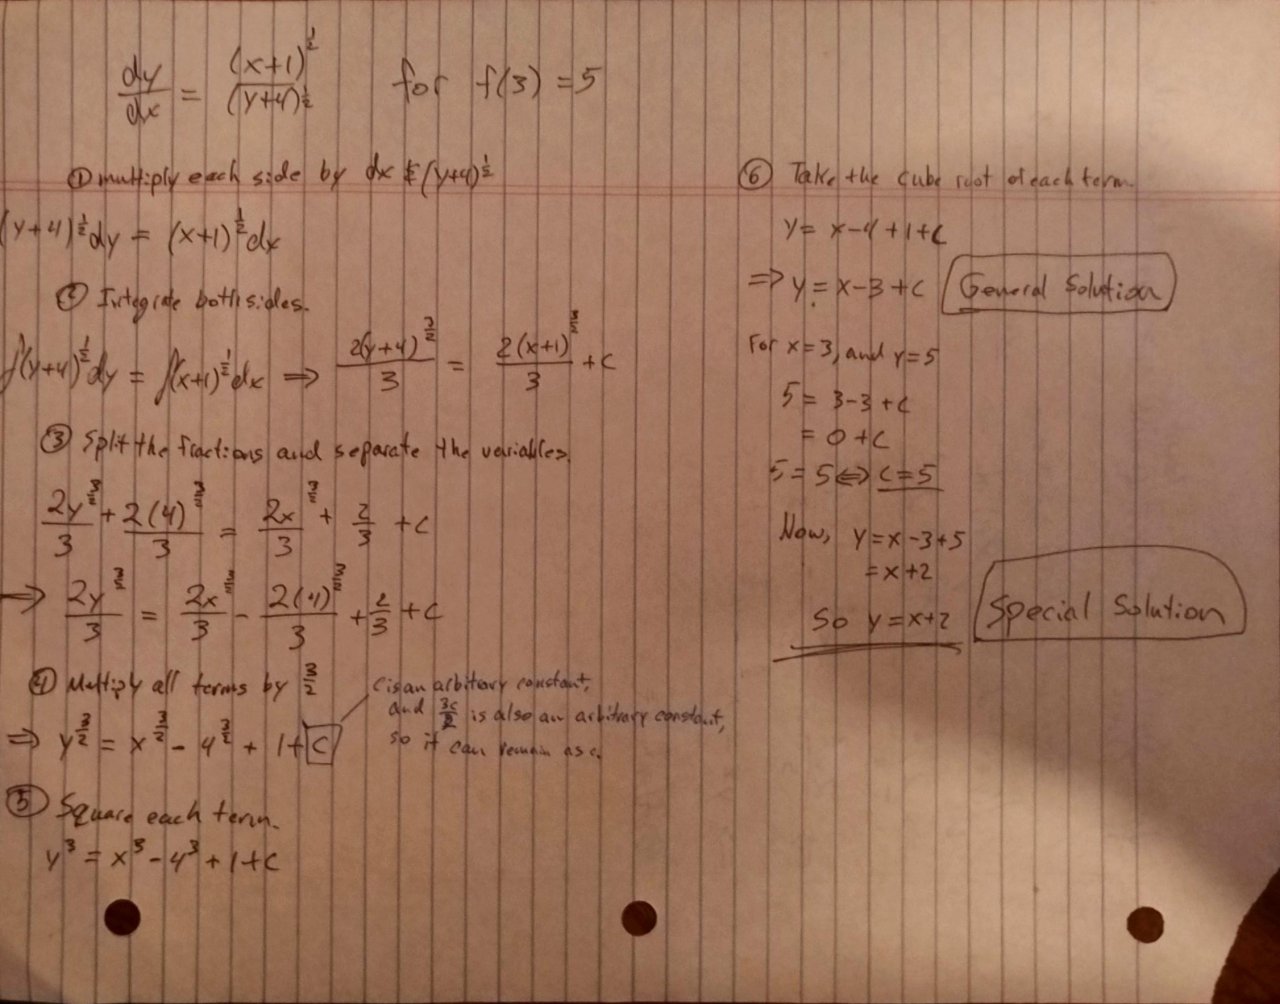 dy/dx = (x+1)^(1/2) / (y+4)^(1/2) for f(3) = 5
① Multiply each side by dx & (y+4)^(1/2)
(y+4)^(1/2) dy = (x+1)^(1/2) dx
② Integrate both sides.
∫(y+4)^(1/2) dy = ∫(x+1)^(1/2) dx ⇒ 2(y+4)^(3/2)/3 = 2(x+1)^(3/2)/3 + C
③ Split the fractions and separate the variables.
2y^(3/2)/3 + 2(4)^(3/2)/3 = 2x^(3/2)/3 + 2/3 + C
⇒ 2y^(3/2)/3 = 2x^(3/2)/3 - 2(4)^(3/2)/3 + 2/3 + C
④ Multiply all terms by 3/2
C is an arbitrary constant,
and 3c/2 is also an arbitrary constant,
so it can remain as c.
⇒ y^(3/2) = x^(3/2) - 4^(3/2) + 1 + C
⑤ Square each term.
y³ = x³ - 4³ + 1 + C
⑥ Take the cube root of each term.
y = x - 4 + 1 + C
⇒ y = x - 3 + C General Solution
For x = 3, and y = 5
5 = 3 - 3 + C
= 0 + C
5 = 5 ⇔ C = 5
Now, y = x - 3 + 5
= x + 2
So y = x + 2 Special Solution